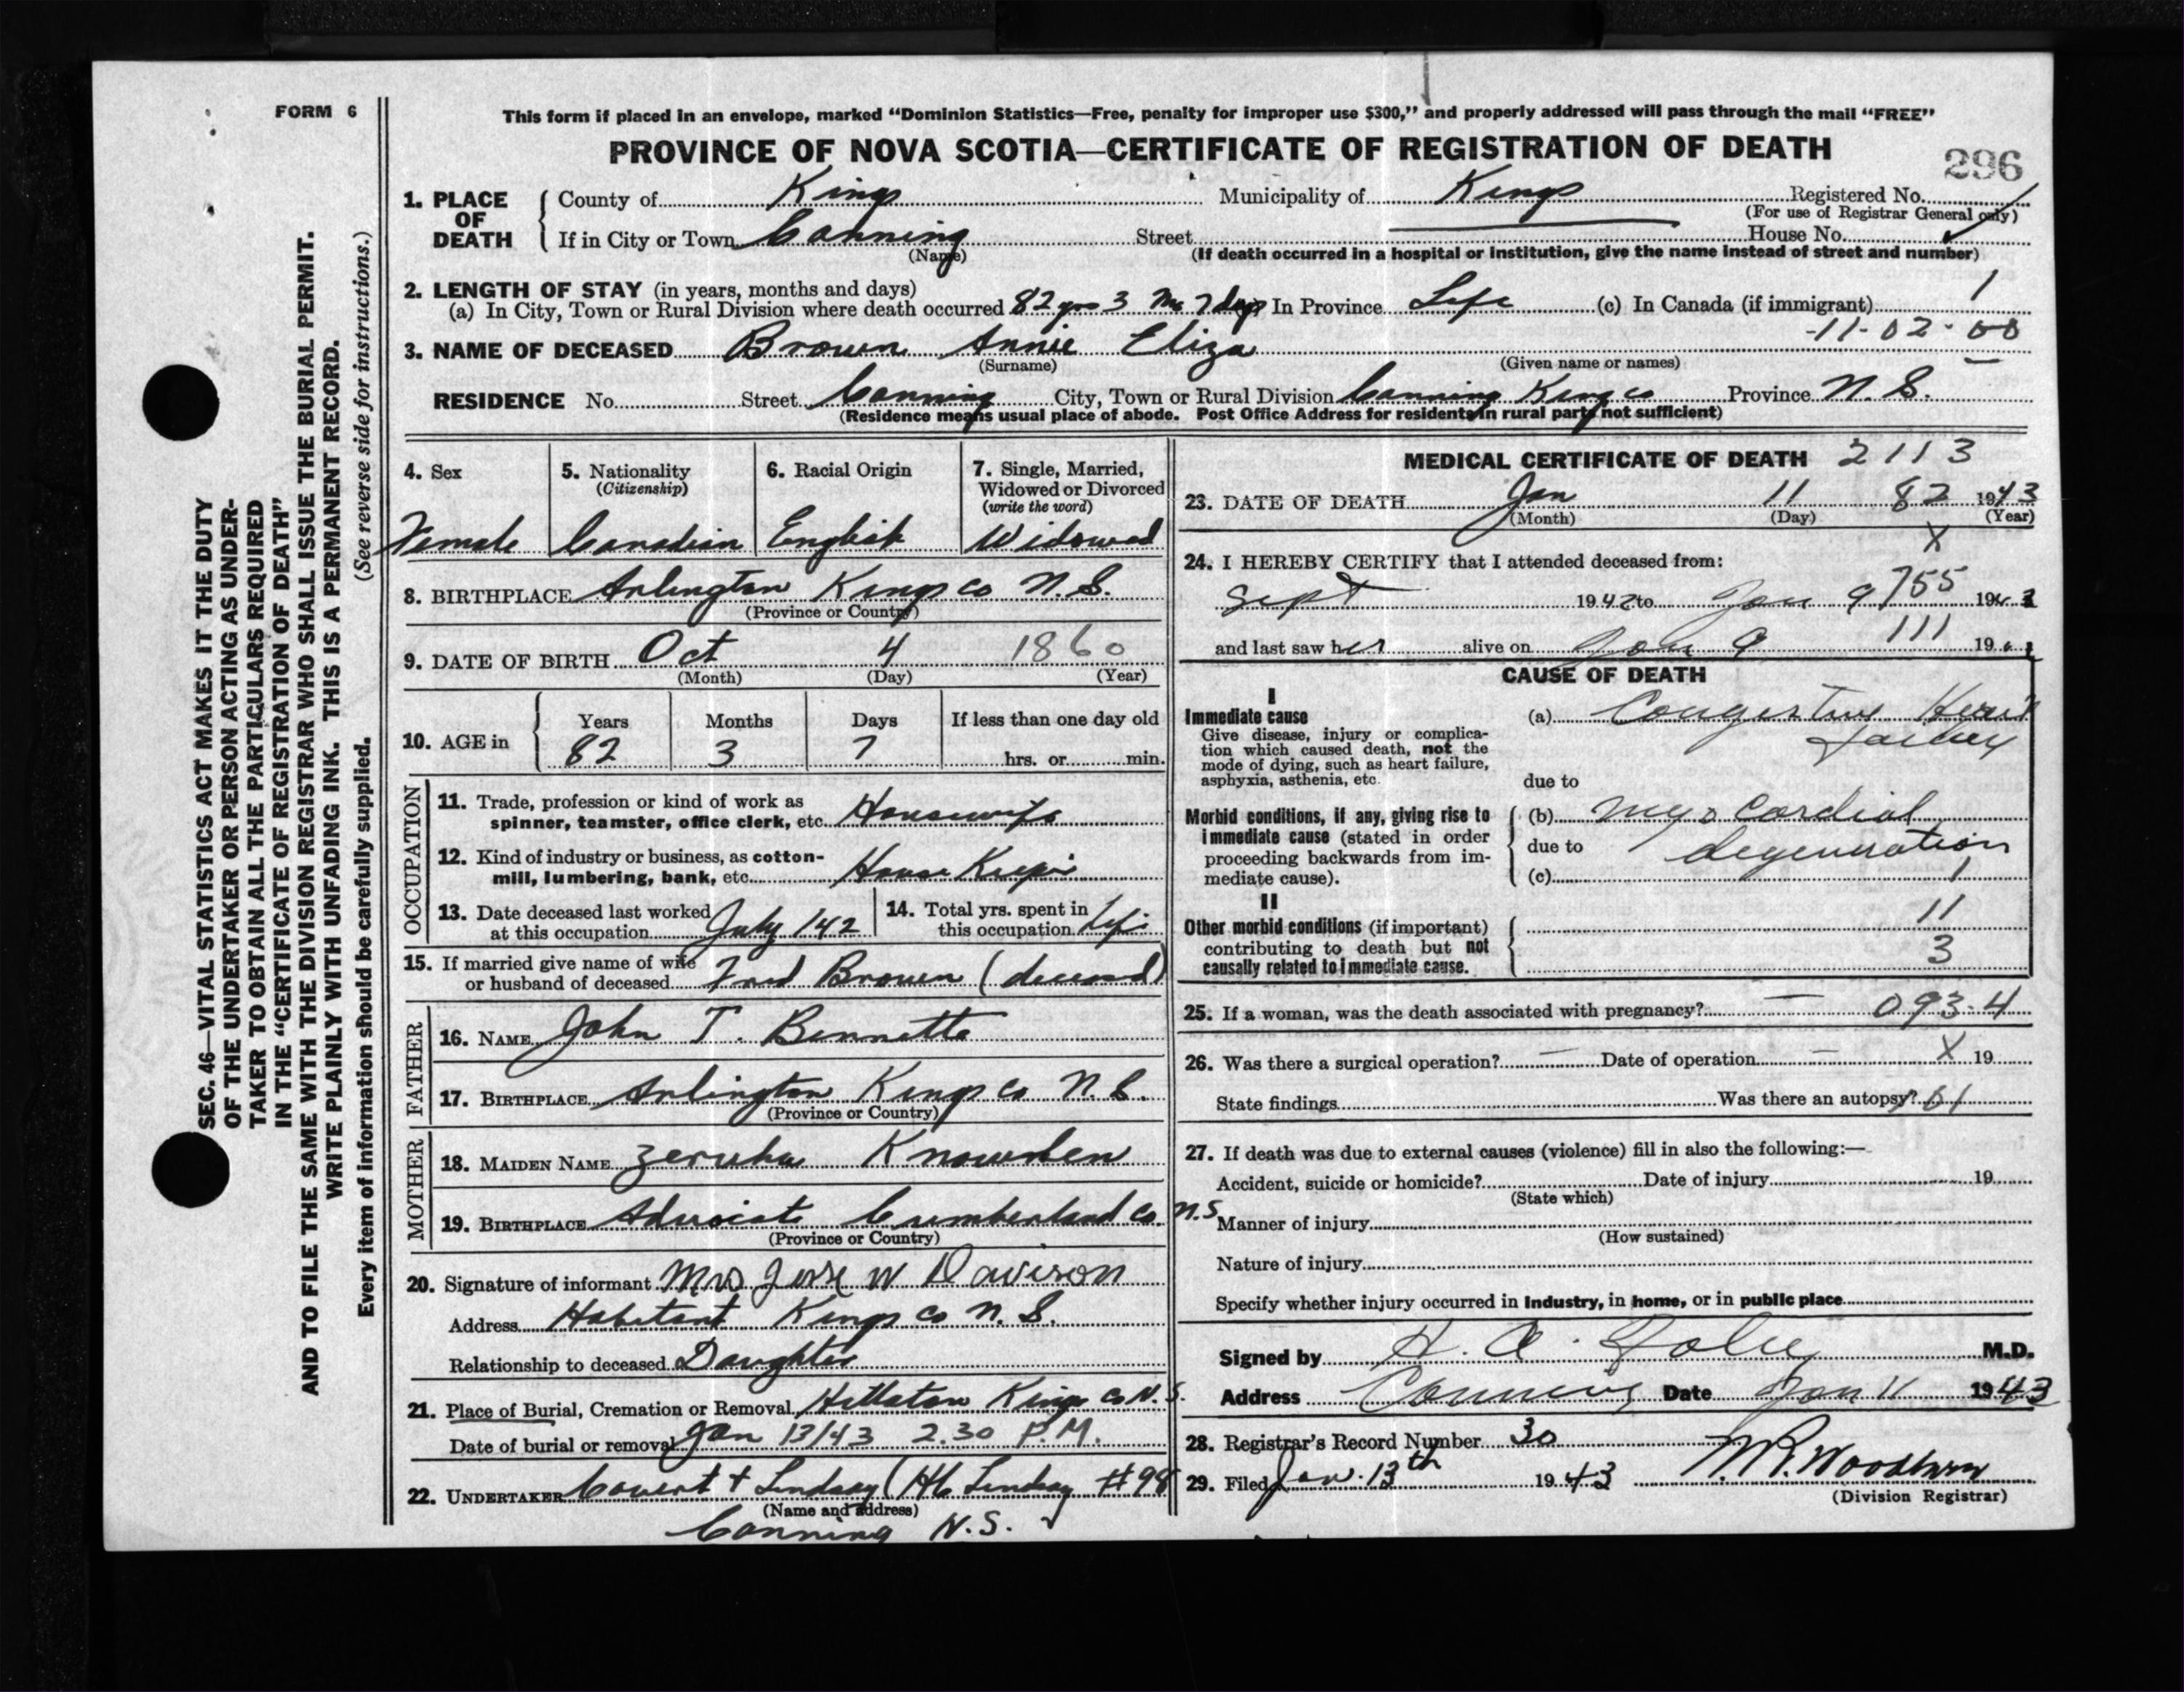 FORM 6
This form if placed in an envelope, marked “Dominion Statistics—Free, penalty for improper use $300,” and properly addressed will pass through the mail “FREE”
PROVINCE OF NOVA SCOTIA—CERTIFICATE OF REGISTRATION OF DEATH
296
1. PLACE OF DEATH
County of Kings Municipality of Kings Registered No.
(For use of Registrar General only)
If in City or Town Canning Street House No.
(Name) (If death occurred in a hospital or institution, give the name instead of street and number)
2. LENGTH OF STAY (in years, months and days) 1
(a) In City, Town or Rural Division where death occurred 82 yrs 3 Ms 7 days In Province Life (c) In Canada (if immigrant)
-11-02-00
3. NAME OF DECEASED Brown Annie Eliza
(Surname) (Given name or names)
RESIDENCE No. Street Canning City, Town or Rural Division Canning Kings Co Province N.S.
(Residence means usual place of abode. Post Office Address for residents in rural parts not sufficient)
4. Sex
Female
5. Nationality
(Citizenship)
Canadian
6. Racial Origin
English
7. Single, Married,
Widowed or Divorced
(write the word)
Widowed
8. BIRTHPLACE Arlington Kings Co N.S.
(Province or Country)
9. DATE OF BIRTH Oct 4 1860
(Month) (Day) (Year)
10. AGE in
Years Months Days If less than one day old
82 3 7 hrs. or min.
OCCUPATION
11. Trade, profession or kind of work as
spinner, teamster, office clerk, etc. Housewife
12. Kind of industry or business, as cotton-
mill, lumbering, bank, etc. House
13. Date deceased last worked
at this occupation July 1/42
14. Total yrs. spent in
this occupation Life
15. If married give name of wife
or husband of deceased Fred Brown (deceased)
FATHER
16. NAME John T. Bennette
17. BIRTHPLACE Arlington Kings Co N.S.
(Province or Country)
MOTHER
18. MAIDEN NAME Zeruha
19. BIRTHPLACE Advocate Cumberland Co. N.S.
(Province or Country)
20. Signature of informant Mrs Jesse W Davison
Address Habitant Kings Co N.S.
Relationship to deceased Daughter
21. Place of Burial, Cremation or Removal Hillaton Kings Co N.S.
Date of burial or removal Jan 13/43 2.30 P.M.
22. UNDERTAKER Covert + Lindsay (H C Lindsay #98
(Name and address)
Canning N.S.
MEDICAL CERTIFICATE OF DEATH 2113
23. DATE OF DEATH Jan 11 82 1943
(Month) (Day) (Year)
X
24. I HEREBY CERTIFY that I attended deceased from:
Sept 1942 to Jan 9 755 1943
and last saw her alive on Jan 9 111 19
CAUSE OF DEATH
I
Immediate cause
Give disease, injury or complica-
tion which caused death, not the
mode of dying, such as heart failure,
asphyxia, asthenia, etc.
(a) Congestive Heart
Failure
due to
Morbid conditions, if any, giving rise to
immediate cause (stated in order
proceeding backwards from im-
mediate cause).
(b) myocardial
due to degeneration
(c) 1
II
Other morbid conditions (if important)
contributing to death but not
causally related to immediate cause.
11
3
25. If a woman, was the death associated with pregnancy? — 093-4
26. Was there a surgical operation? — Date of operation — X 19
State findings Was there an autopsy?
27. If death was due to external causes (violence) fill in also the following:—
Accident, suicide or homicide? Date of injury 19
(State which)
Manner of injury
(How sustained)
Nature of injury
Specify whether injury occurred in industry, in home, or in public place
Signed by H. A. M.D.
Address Canning Date Jan 11 1943
28. Registrar's Record Number 30
29. Filed Jan. 13th 1943
(Division Registrar)
SEC. 46—VITAL STATISTICS ACT MAKES IT THE DUTY
OF THE UNDERTAKER OR PERSON ACTING AS UNDER-
TAKER TO OBTAIN ALL THE PARTICULARS REQUIRED
IN THE “CERTIFICATE OF REGISTRATION OF DEATH”
AND TO FILE THE SAME WITH THE DIVISION REGISTRAR WHO SHALL ISSUE THE BURIAL PERMIT.
WRITE PLAINLY WITH UNFADING INK. THIS IS A PERMANENT RECORD.
Every item of information should be carefully supplied. (See reverse side for instructions.)